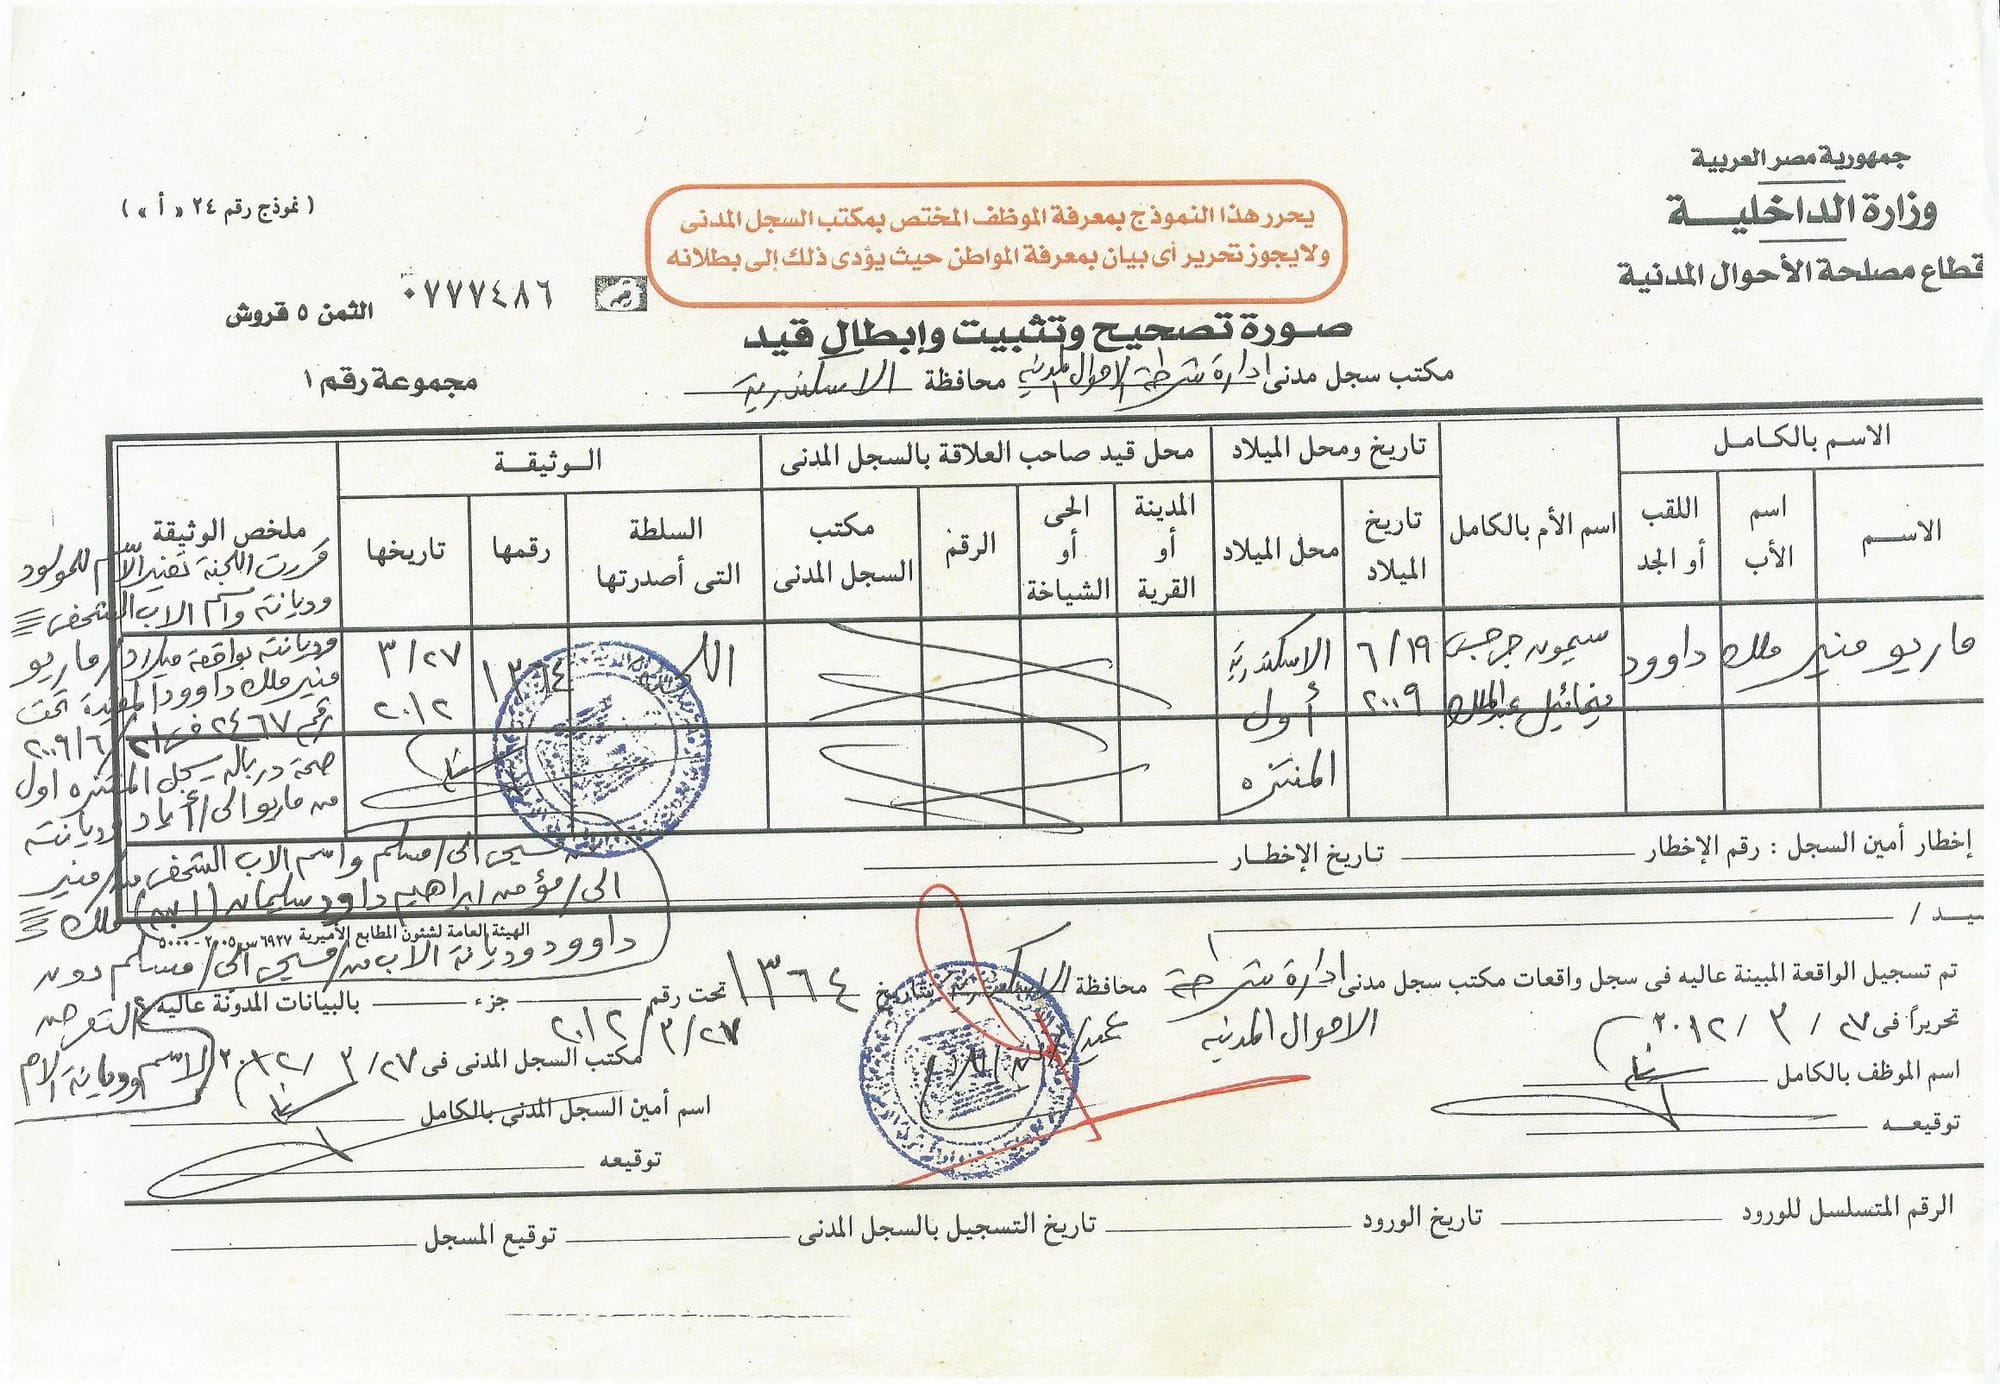 جمهورية مصر العربية
وزارة الداخلية
قطاع مصلحة الأحوال المدنية
يحرر هذا النموذج بمعرفة الموظف المختص بمكتب السجل المدنى
ولا يجوز تحرير أى بيان بمعرفة المواطن حيث يؤدى ذلك إلى بطلانه
( نموذج رقم ٢٤ « أ » )
٠٧٧٧٤٨٦
الثمن ٥ قروش
مجموعة رقم ١
صورة تصحيح وتثبيت وإبطال قيد
مكتب سجل مدنى ادارة شرطة الاحوال المدنية محافظة الاسكندرية
الاسم بالكامل
الاسم
اسم الأب
اللقب أو الجد
اسم الأم بالكامل
تاريخ ومحل الميلاد
تاريخ الميلاد
محل الميلاد
محل قيد صاحب العلاقة بالسجل المدنى
المدينة أو القرية
الحى أو الشياخة
الرقم
مكتب السجل المدنى
الوثيقة
السلطة التى أصدرتها
رقمها
تاريخها
ملخص الوثيقة
ماريو منير ملك داوود
سيمون جرجس
ميخائيل عبد الملك
٦/١٩
٢٠٠٩
الاسكندرية
أول
المنتزه
١٣٦٤
٣/٢٧
٢٠١٢
قررت اللجنة تغيير الاسم للمولود
وديانته واسم الاب الشخصى
وديانته بواقعة ميلاد/ ماريو
منير ملك داوود المقيدة تحت
رقم ٢٤٦٧ فى ٢٠٠٩/٦/٢١
صحة دربالة سجل المنتزه اول
من ماريو الى/ أياد وديانته
من مسيحى الى/ مسلم واسم الاب الشخصى من/ منير
ملك داوود الى/ مؤمن ابراهيم داود سليمان
وديانة الاب من/ مسيحى الى/ مسلم دون
التعرض
لاسم وديانة الام
إخطار أمين السجل : رقم الإخطار تاريخ الإخطار
الهيئة العامة لشئون المطابع الأميرية ٦٩٢٧ س ٢٠٠٥ - ٥٠٠٠٠
سيد /
تم تسجيل الواقعة المبينة عاليه فى سجل واقعات مكتب سجل مدنى ادارة شرطة محافظة الاسكندرية بتاريخ
الاحوال المدنية
تحت رقم ١٣٦٤ جزء بالبيانات المدونة عاليه
٣/٢٧/ ٢٠١٢
تحريراً فى ٢٧ / ٣ / ٢٠١٢
اسم الموظف بالكامل
توقيعه
مكتب السجل المدنى فى ٢٧/ ٣ / ٢٠١٢
اسم أمين السجل المدنى بالكامل
توقيعه
الرقم المتسلسل للورود تاريخ الورود تاريخ التسجيل بالسجل المدنى توقيع المسجل